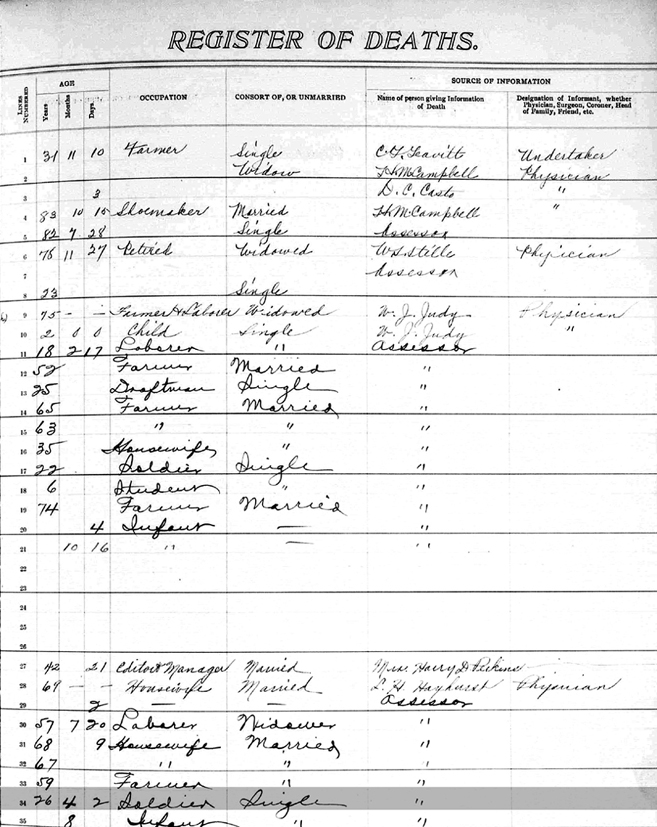 REGISTER OF DEATHS.
AGE
SOURCE OF INFORMATION
LINES NUMBERED
Years
Months
Days
OCCUPATION
CONSORT OF, OR UNMARRIED
Name of person giving Information of Death
Designation of Informant, whether Physician, Surgeon, Coroner, Head of Family, Friend, etc.
1 31 11 10 Farmer Single C. F. Leavitt Undertaker
2 Widow F. H. McCampbell Physician
3 3 D. C. Casto "
4 83 10 15 Shoemaker Married F. H. McCampbell "
5 82 7 28 Single Assessor
6 76 11 27 Retired Widowed W S Stille Physician
7 Assessor
8 23 Single
9 75 - - Farmer & Laborer Widowed W. J. Judy Physician
10 2 0 0 Child Single W. J. Judy "
11 18 2 17 Laborer " Assessor
12 52 Farmer Married "
13 25 Draftman Single "
14 65 Farmer Married "
15 63 " " "
16 35 Housewife " "
17 22 Soldier Single "
18 6 Student " "
19 74 Farmer Married "
20 4 Infant — "
21 10 16 " — "
22
23
24
25
26
27 42 21 Editor & Manager Married Mrs. Harry D Perkins
28 69 - - Housewife Married L. H. Hayhurst Physician
29 2 — — Assessor
30 57 7 20 Laborer Widower "
31 68 9 Housewife Married "
32 67 " " "
33 59 Farmer " "
34 26 4 2 Soldier Single "
35 8 Infant " "